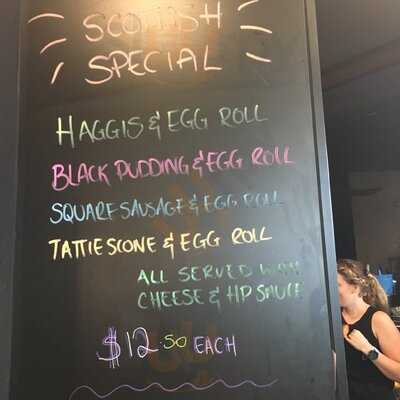 SCOTTISH
SPECIAL
HAGGIS & EGG ROLL
BLACK PUDDING & EGG ROLL
SQUARE SAUSAGE & EGG ROLL
TATTIE SCONE & EGG ROLL
ALL SERVED WITH
CHEESE & HP SAUCE
$12.50 EACH